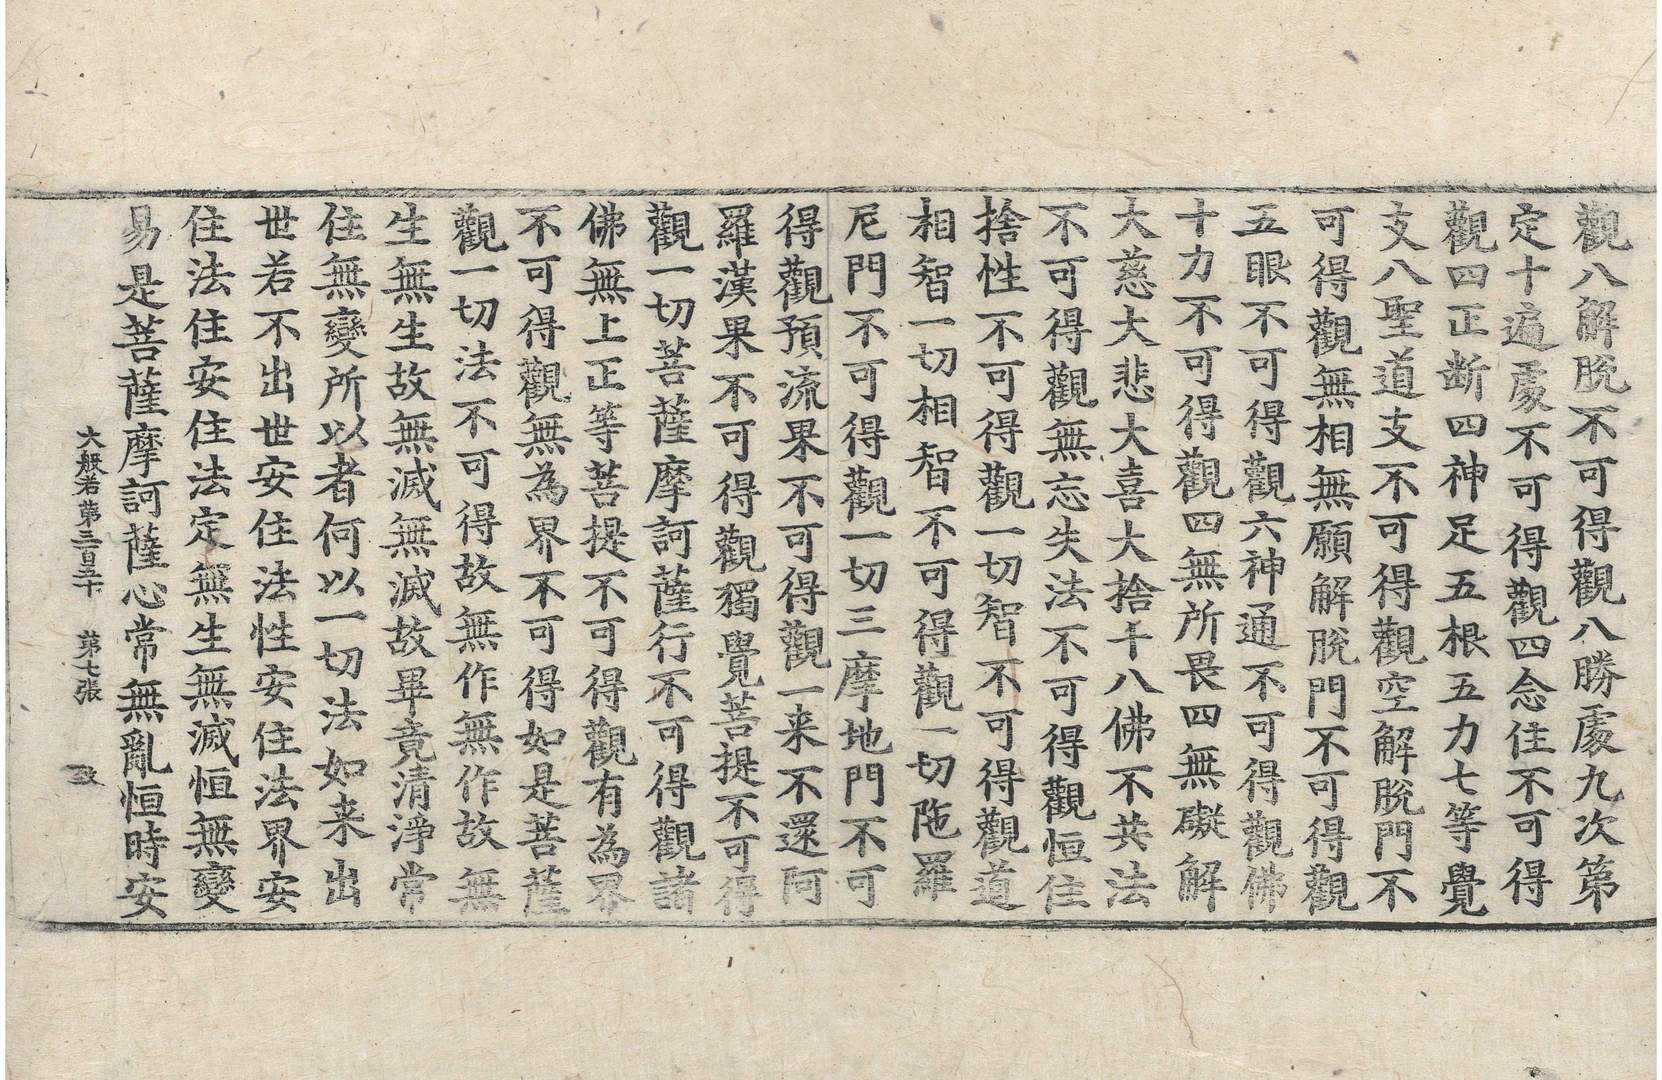 觀八解脫不可得觀八勝處九次第
定十遍處不可得觀四念住不可得
觀四正斷四神足五根五力七等覺
支八聖道支不可得觀空解脫門不
可得觀無相無願解脫門不可得觀
五眼不可得觀六神通不可得觀佛
十力不可得觀四無所畏四無礙解
大慈大悲大喜大捨十八佛不共法
不可得觀無忘失法不可得觀恒住
捨性不可得觀一切智不可得觀道
相智一切相智不可得觀一切陁羅
尼門不可得觀一切三摩地門不可
得觀預流果不可得觀一来不還阿
羅漢果不可得觀獨覺菩提不可得
觀一切菩薩摩訶薩行不可得觀諸
佛無上正等菩提不可得觀有為界
不可得觀無為界不可得如是菩薩
觀一切法不可得故無作無作故無
生無生故無滅無滅故畢竟清淨常
住無變所以者何以一切法如来出
世若不出世安住法性安住法界安
住法住安住法定無生無滅恒無變
易是菩薩摩訶薩心常無亂恒時安
大般若第三百五十 第七張